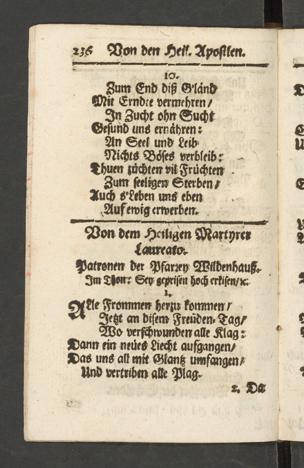 236 Von den Heil. Apostlen.
10.
Zum End diß G'länd
Mit Erndte vermehren/
In Zucht ohn Sucht
Gesund uns ernähren:
An Seel und Leib
Nichts Böses verbleib:
Thuen züchten vil Früchten
Zum seeligen Sterben/
Auch s'Leben uns eben
Auf ewig erwerben.
Von dem Heiligen Martyrer
Laureato.
Patronen der Pfarrey Wildenhauß.
Im Thon: Sey geprisen hoch erkisen/ꝛc.
1.
Alle Frommen herzu kommen/
Jetzt an disem Freuden-Tag/
Wo verschwunden alle Klag:
Dann ein neües Liecht aufgangen/
Das uns all mit Glantz umfangen/
Und vertriben alle Plag.
2. Da